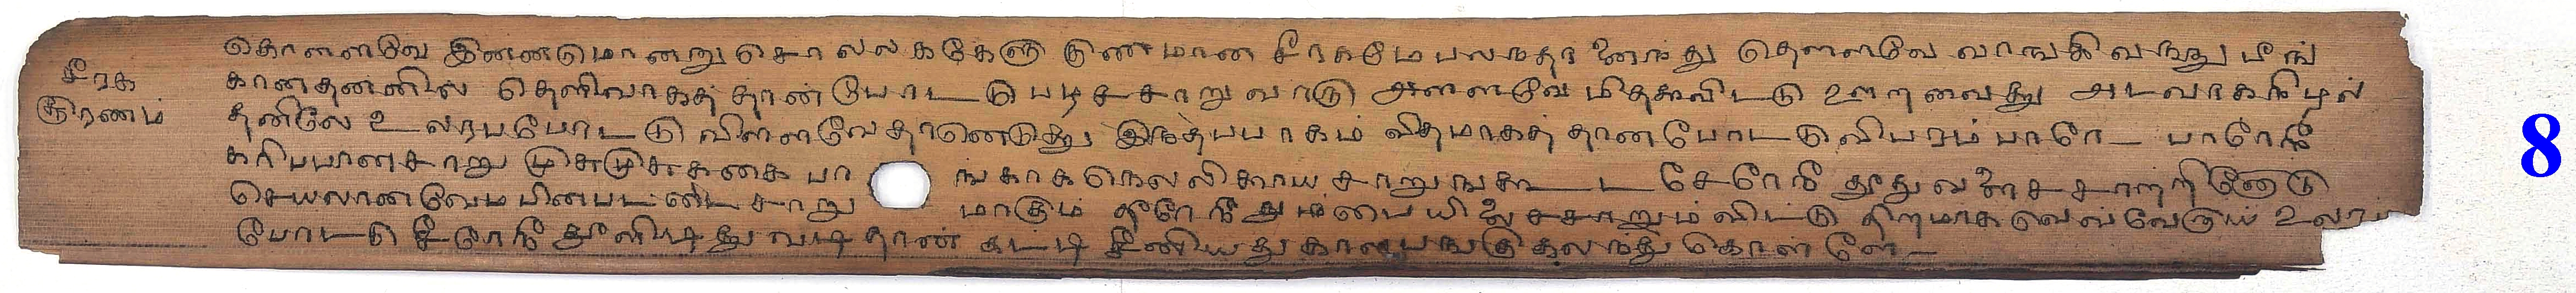 கொளளவே இனனமொனறு சொலலககேளு குணமான சீரகமே பலநதானைநது தெளளவே வாஙகிவநது பீங்
சீரக கானதனனில் தெளிவாகத் தான் போடடு படிசசாறு வாரு அளளவே மிதகவிடடு ஊறவைதது அடவாகநிழல்
சூரணம் தனிலே உலரபபோடடு விளளவே தானெடுதது இநதபபாகம் விதமாகத் தானபோடடு விபரம்பாரே பாரேநீ
கரிபபானசாறு முசுமுசுககை பாஙகாக நெலலிககாய சாறுஙகூட சேரேநீ தூதுவளைசசாறறினோடு
செயலானவேமபினபடடைசாறு மாகும் தீரேநீ துமபையிலைசசாறும்விடடு திறமாகவெவவேறாய் உலரப
போடடு சீரேநீ தூளிடிதது வடிதான் கடடி சீனியது காலபஙகுகலநது கொள்ளே
8